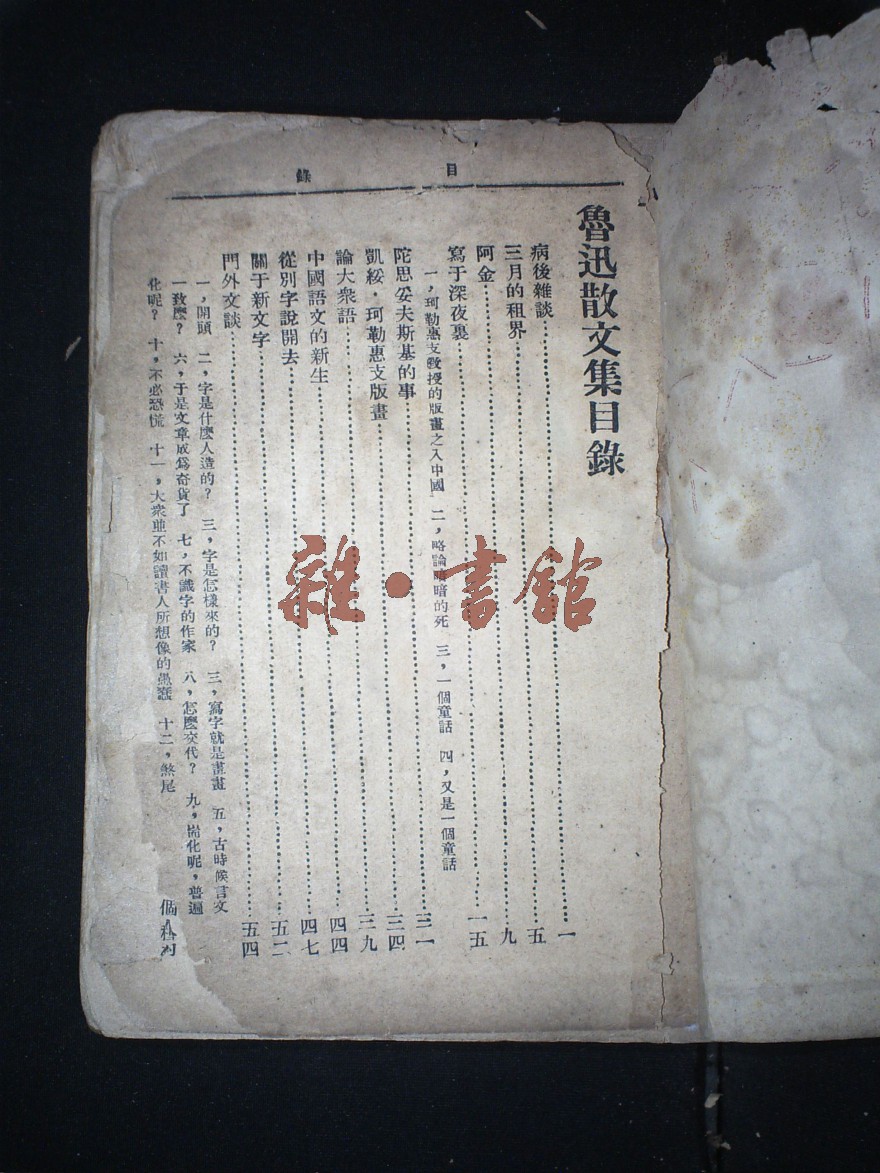 目錄
魯迅散文集目錄
病後雜談……一
三月的租界……五
阿金……九
寫于深夜裏……一五
一，珂勒惠支教授的版畫之入中國 二，略論暗暗的死 三，一個童話 四，又是一個童話
陀思妥夫斯基的事……三一
凱綏·珂勒惠支版畫……三四
論大衆語……三九
中國語文的新生……四四
從別字說開去……四七
關于新文字……五二
門外文談……五四
一，開頭 二，字是什麼人造的？ 三，字是怎樣來的？ 三，寫字就是畫畫 五，古時候言文
一致麼？ 六，于是文章成爲奇貨了 七，不識字的作家 八，怎麼交代？ 九，崙化呢，普遍
化呢？ 十，不必恐慌 十一，大衆並不如讀書人所想像的愚蠢 十二，煞尾
雜·書館